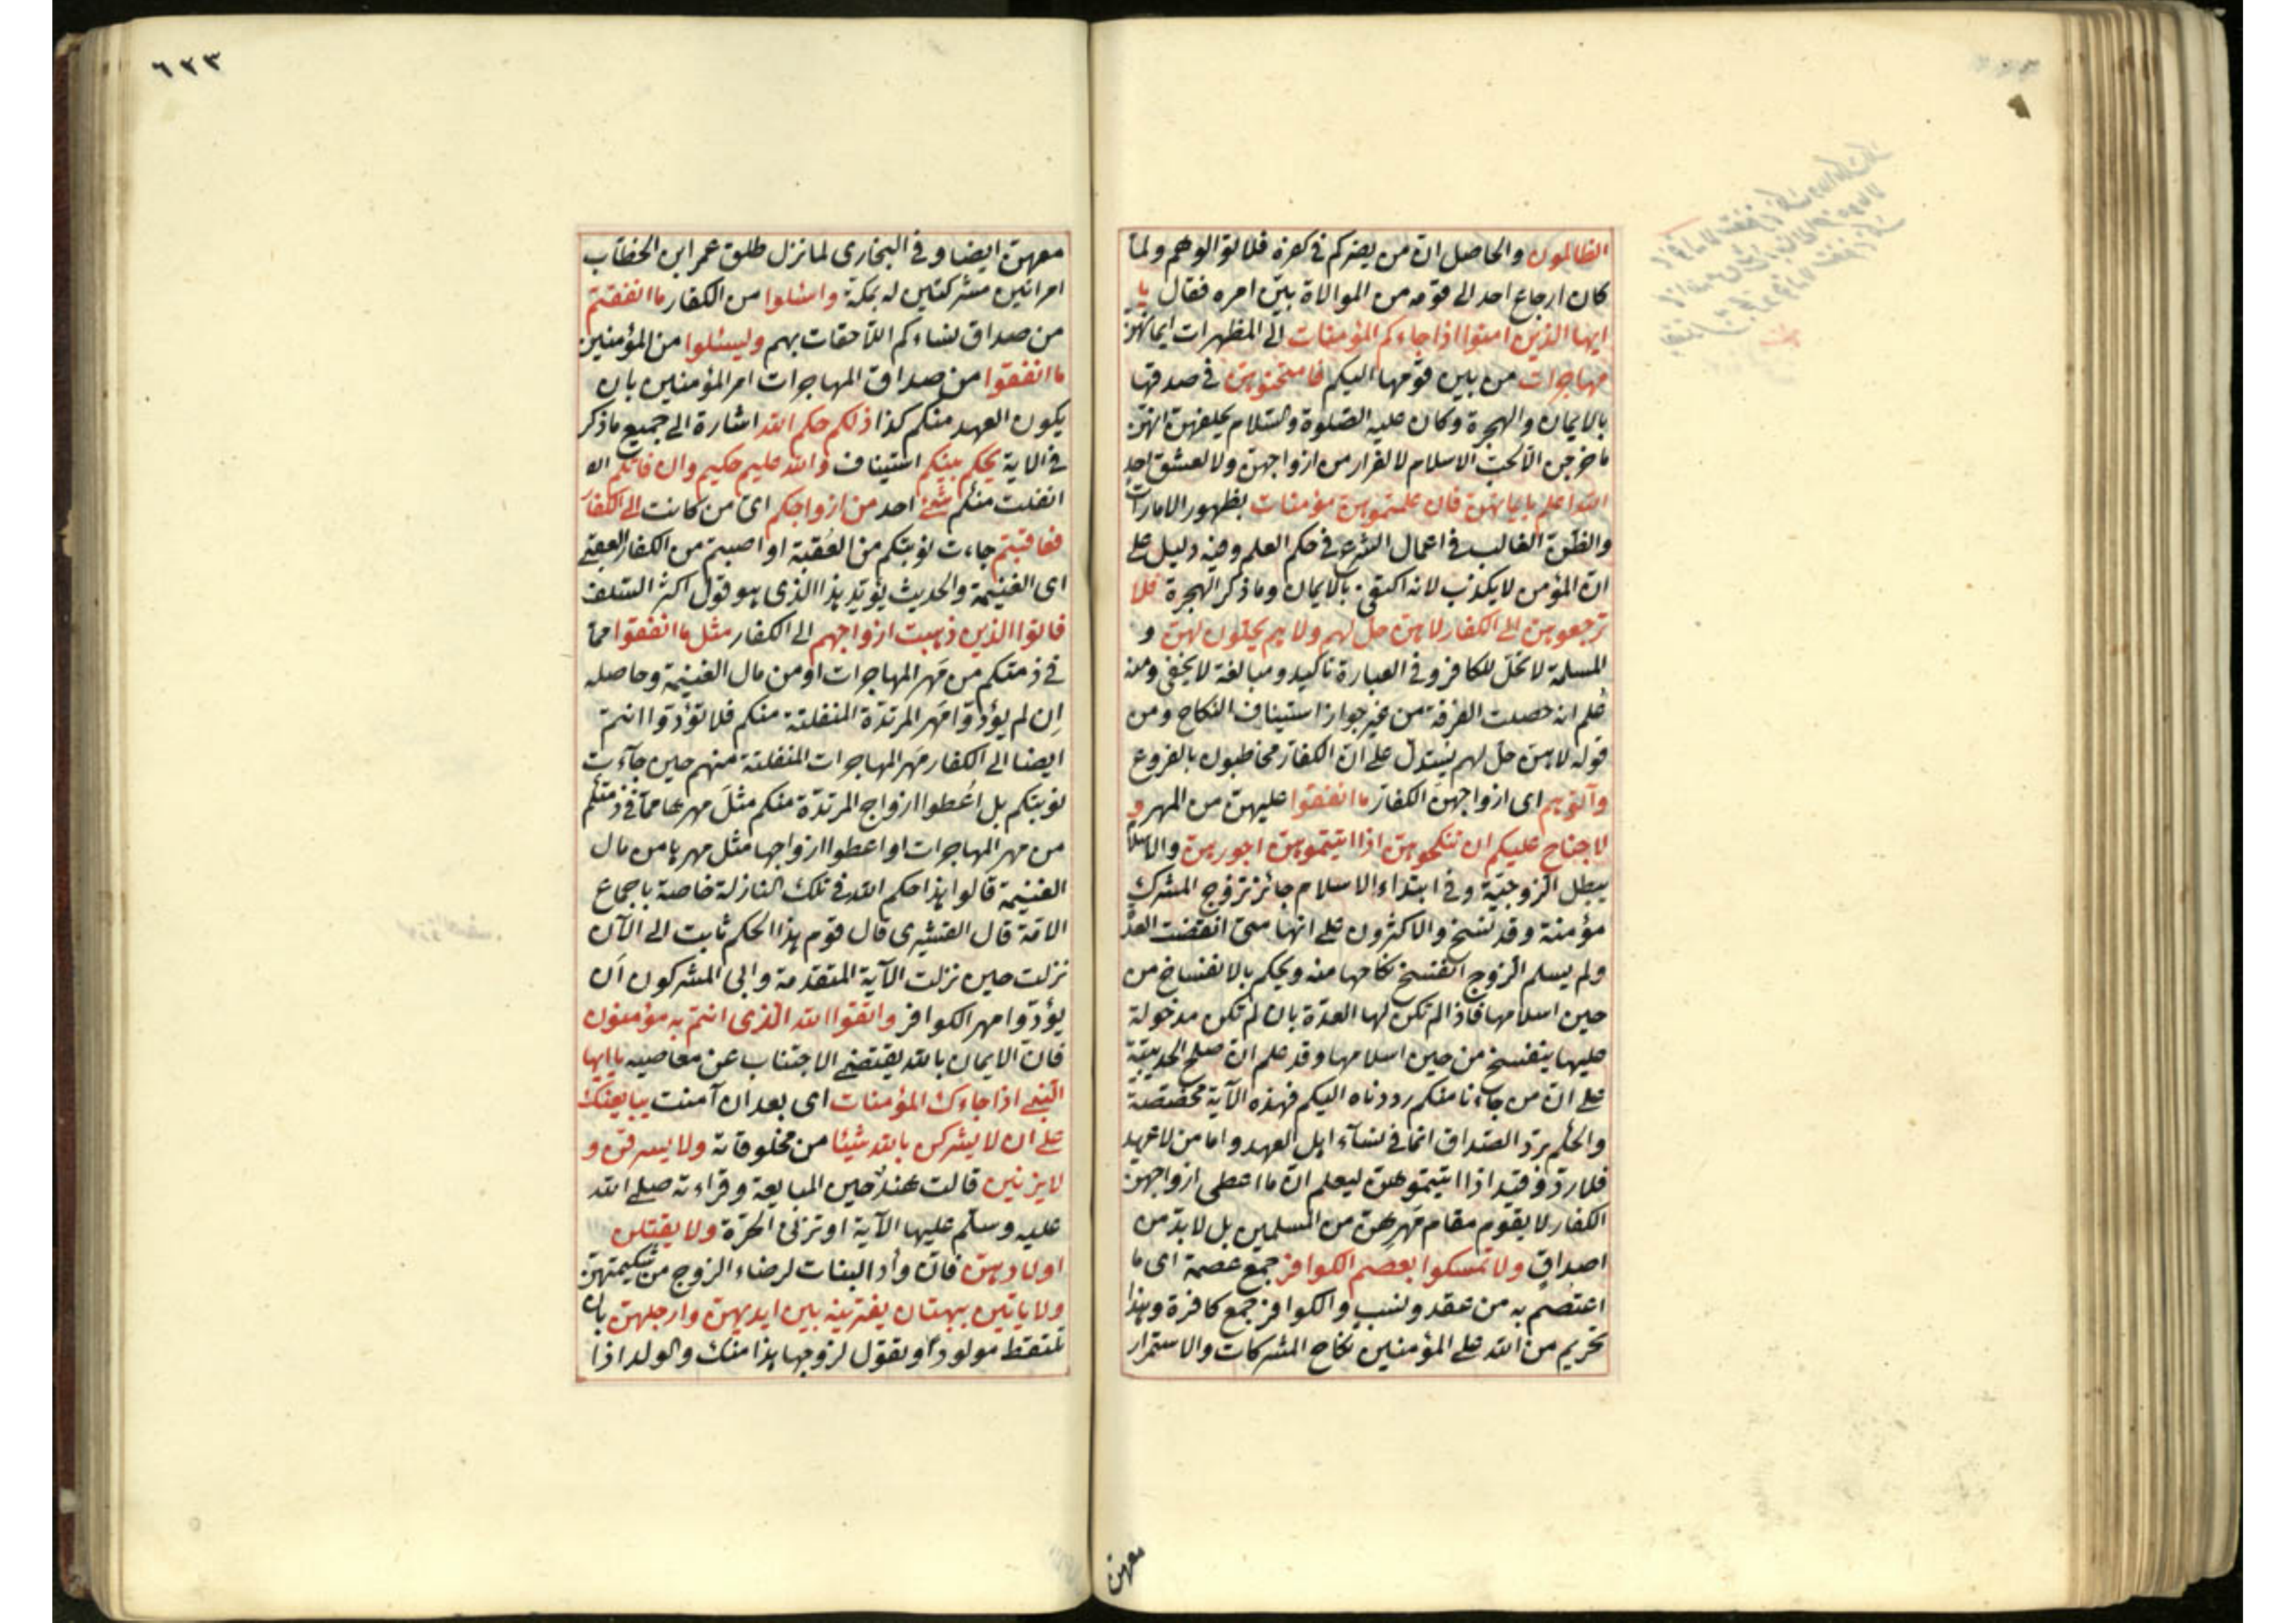 الظالمون والحاصل ان من يضركم في كفره فلا توالوهم ولما
كان ارجاع احد الى قومه من الموالاة بين امره فقال يا
ايها الذين امنوا اذا جاءكم المؤمنات الى المظهرات ايمانهن
مهاجرات من بين قومها اليكم فامتحنوهن في صدقها
بالايمان والهجرة وكان عليه الصلوة والسلام يحلفهن انهن
ما خرجن الا لحب الاسلام لا لفرار من ازواجهن ولا لعشق احد
الله اعلم بايمانهن فان علمتموهن مؤمنات بظهور الامارات
والظن الغالب في اعمال الشرع في حكم العلم وفيه دليل على
ان المؤمن لا يكذب لانه اكتفى بالايمان وما ذكر الهجرة فلا
ترجعوهن الى الكفار لا هن حل لهم ولا هم يحلون لهن و
المسلمة لا تحل للكافر وفي العبارة تاكيد ومبالغة لا يخفى ومنه
عُلم انه حصلت الفرقة من غير جواز استيناف النكاح ومن
قوله لا هن حل لهم يستدل على ان الكفار مخاطبون بالفروع
وآتوهم اى ازواجهن الكفار ما انفقوا عليهن من المهر و
لا جناح عليكم ان تنكحوهن اذا اتيتموهن اجورهن والاسلام
يبطل الزوجية وفي ابتداء الاسلام جائز تزوج المشرك
مؤمنة وقد نسخ والاكثرون على انها متى انقضت العدة
ولم يسلم الزوج انفسخ نكاحها منه ويحكم بالانفساخ من
حين اسلامها فاذا لم تكن لها العدة بان لم تكن مدخولة
عليها ينفسخ من حين اسلامها وقد علم ان صلح الحديبية
على ان من جاءنا منكم رددناه اليكم فهذه الآية مخصصة
والحكم برد الصداق انما في نسآء اهل العهد واما من لا عهد
فلا رد وقيد اذا اتيتموهن ليعلم ان ما اعطى ازواجهن
الكفار لا يقوم مقام مَهرِهن من المسلمين بل لا بد من
اصداق ولا تمسكوا بعصم الكوافر جمع عصمة اى ما
اعتصم به من عقد ونسب والكوافر جمع كافرة وهذا
تحريم من الله على المؤمنين نكاح المشركات والاستمرار
معهن
٦٣٣
معهن ايضا وفي البخارى لما نزل طلق عمر ابن الخطاب
امراتين مشركتين له بمكة واسئلوا من الكفار ما انفقتم
من صداق نساءكم اللاحقات بهم وليسئلوا من المؤمنين
ما انفقوا من صداق المهاجرات امر المؤمنين بان
يكون العهد منكم كذا ذلكم حكم الله اشارة الى جميع ما ذكر
في الاية يحكم بينكم استيناف والله عليم حكيم وان فاتكم ان
انفلت منكم شئ احد من ازواجكم اى من كانت الى الكفار
فعاقبتم جاءت نوبتكم من العُقبة او اصبتم من الكفار العقبى
اى الغنيمة والحديث يؤيد هذا الذى هو قول اكثر السلف
فاتوا الذين ذهبت ازواجهم الى الكفار مثل ما انفقوا مما
في ذمتكم من مَهر المهاجرات او من مال الغنيمة وحاصله
اِن لم يؤدوا مَهر المرتدة المنفلتة منكم فلا تؤدوا انتم
ايضا الى الكفار مَهر المهاجرات المنفلتة منهم حين جاءت
نوبتكم بل اعُطوا ازواج المرتدة منكم مثلَ مهرها مما في ذمتكم
من مهر المهاجرات او اعطوا ازواجها مثل مهرها من مال
الغنيمة قالوا هذا حكم الله في تلك النازلة خاصة باجماع
الامة قال القشيرى قال قوم هذا الحكم ثابت الى الآن
نزلت حين نزلت الآية المتقدمة وابى المشركون اَن
يؤدوا مهر الكوافر واتقوا الله الذى انتم به مؤمنون
فان الايمان بالله يقتضى الاجتناب عن معاصيه يا ايها
النبى اذا جاءك المؤمنات اى بعد ان آمنت يبايعنك
على ان لا يشركن بالله شيئا من مخلوقاته ولا يسرقن و
لا يزنين قالت هند حين المبايعة وقراءته صلى الله
عليه وسلم عليها الآية او تزنى الحرة ولا يقتلن
اولادهن فان وأد البنات لرضاء الزوج من شكيمتهن
ولا ياتين ببهتان يفترينه بين ايديهن وارجلهن بان
تلتقط مولودا وتقول لزوجها هذا منك والولد اذا